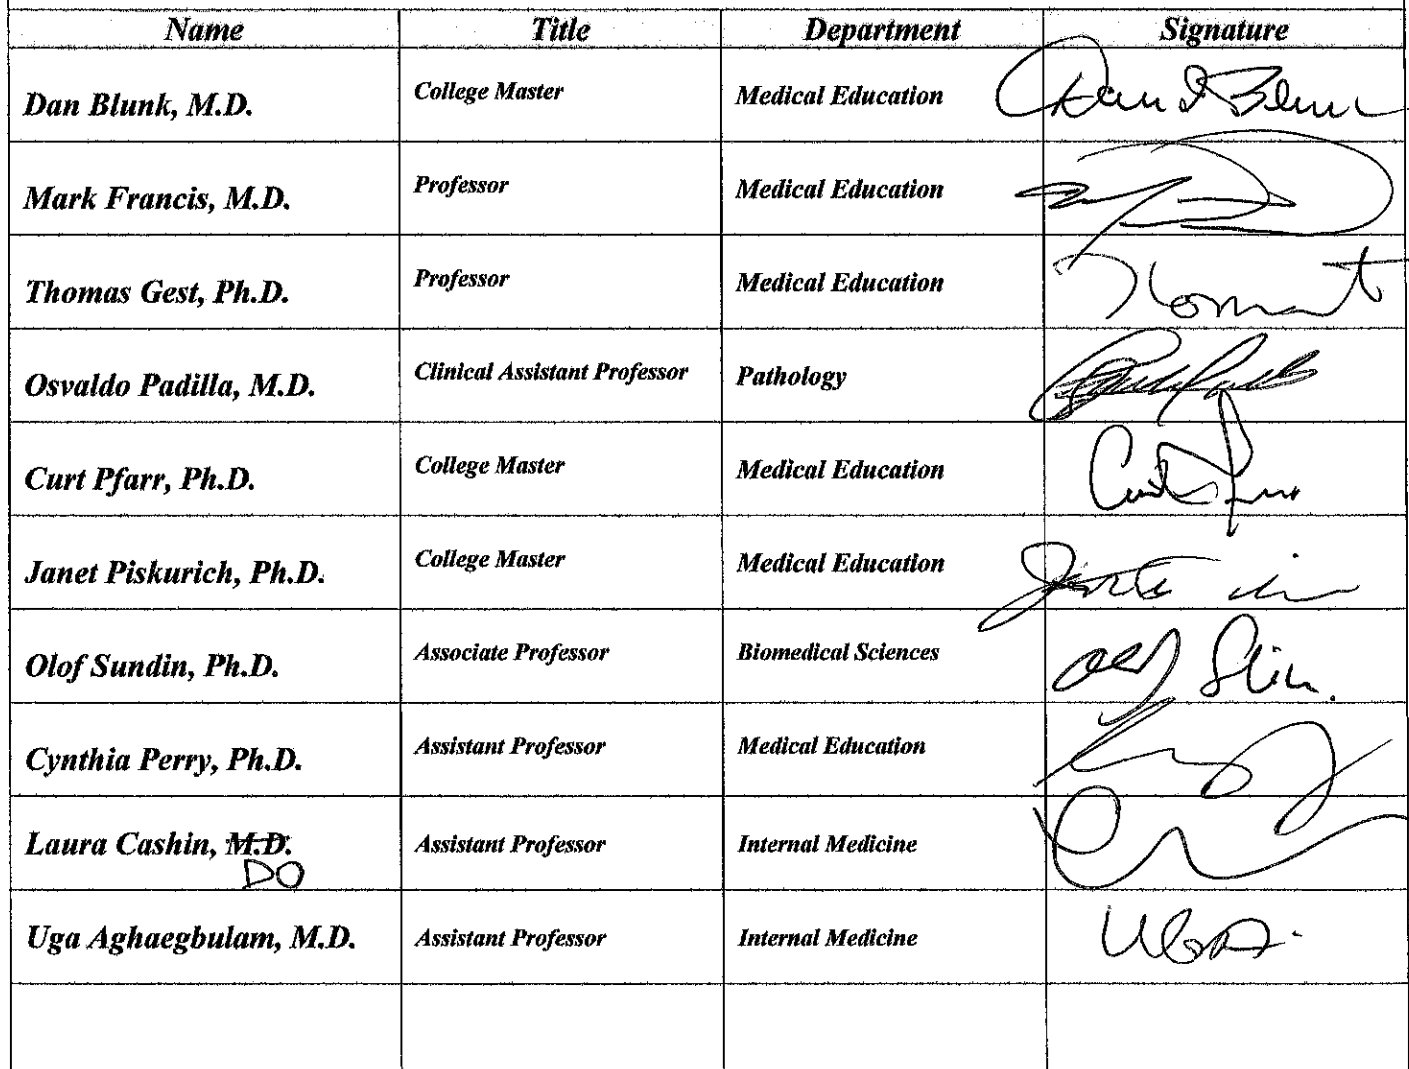 Name Title Department Signature
Dan Blunk, M.D. College Master Medical Education
Mark Francis, M.D. Professor Medical Education
Thomas Gest, Ph.D. Professor Medical Education
Osvaldo Padilla, M.D. Clinical Assistant Professor Pathology
Curt Pfarr, Ph.D. College Master Medical Education
Janet Piskurich, Ph.D. College Master Medical Education
Olof Sundin, Ph.D. Associate Professor Biomedical Sciences
Cynthia Perry, Ph.D. Assistant Professor Medical Education
Laura Cashin, M.D. Assistant Professor Internal Medicine
DO
Uga Aghaegbulam, M.D. Assistant Professor Internal Medicine